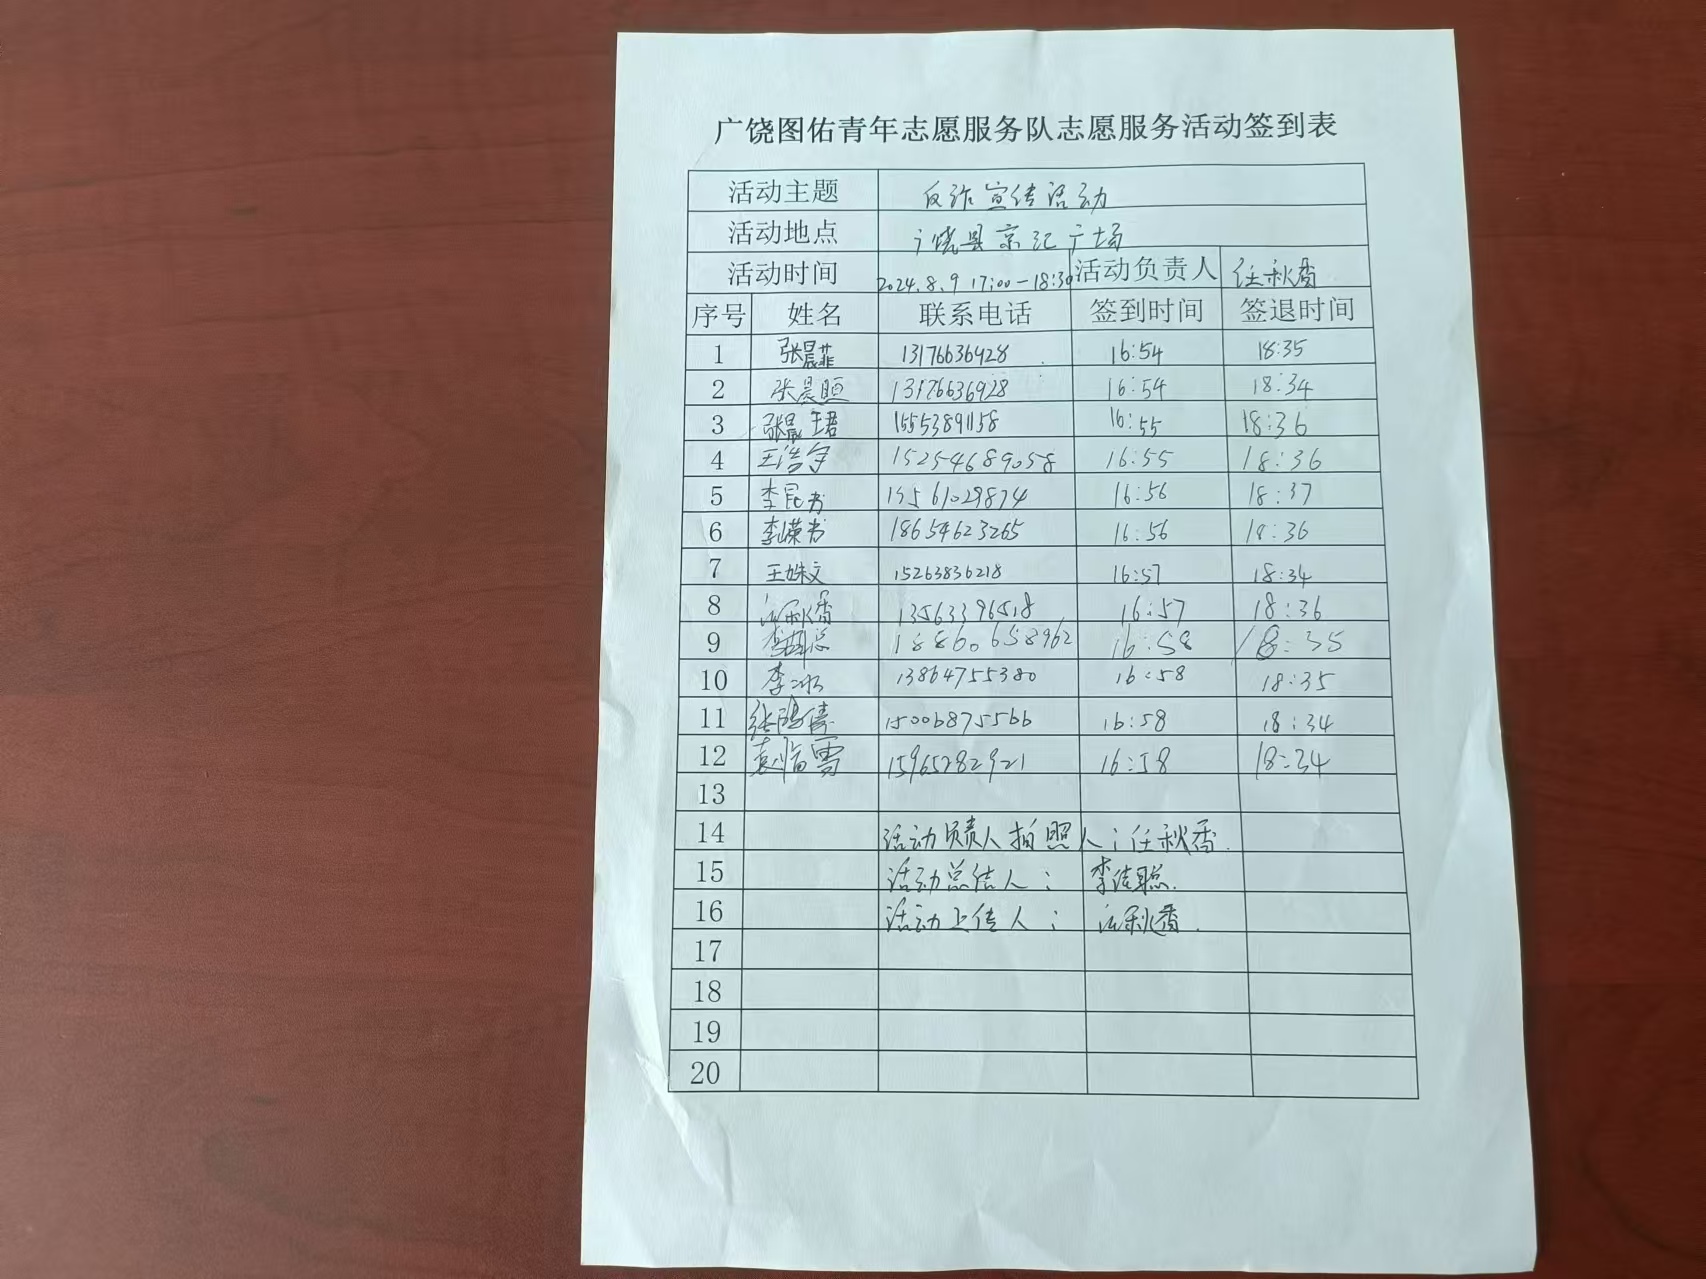 广饶图佑青年志愿服务队志愿服务活动签到表
活动主题 反诈宣传活动
活动地点 广饶县京汇广场
活动时间 2024.8.9 17:00-18:30 活动负责人 任秋香
序号 姓名 联系电话 签到时间 签退时间
1 张晨菲 13176636928 16:54 18:35
2 张晨 13176636928 16:54 18:34
3 张晨珺 15553891158 16:55 18:36
4 王浩宇 15254689058 16:55 18:36
5 李昆书 15561029874 16:56 18:37
6 李嵘书 18654623265 16:56 18:36
7 王姝文 15263836218 16:57 18:34
8 任秋香 13563396518 16:57 18:36
9 18860658962 16:58 18:35
10 李冰 13864755380 16:58 18:35
11 张 倩 15006875566 16:58 18:34
12 袁临雪 15965282921 16:58 18:34
13
14 活动负责人拍照人:任秋香.
15 活动总结人: 李佳聪.
16 活动上传人: 任秋香.
17
18
19
20